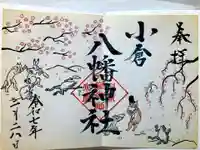 奉拝
小倉
八幡神社
令和七年
二月二八日